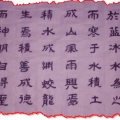 於藍冰水為之
而寒於水積土
成山風雨興焉
積水成淵蛟龍
生焉積善成德
而神明自得